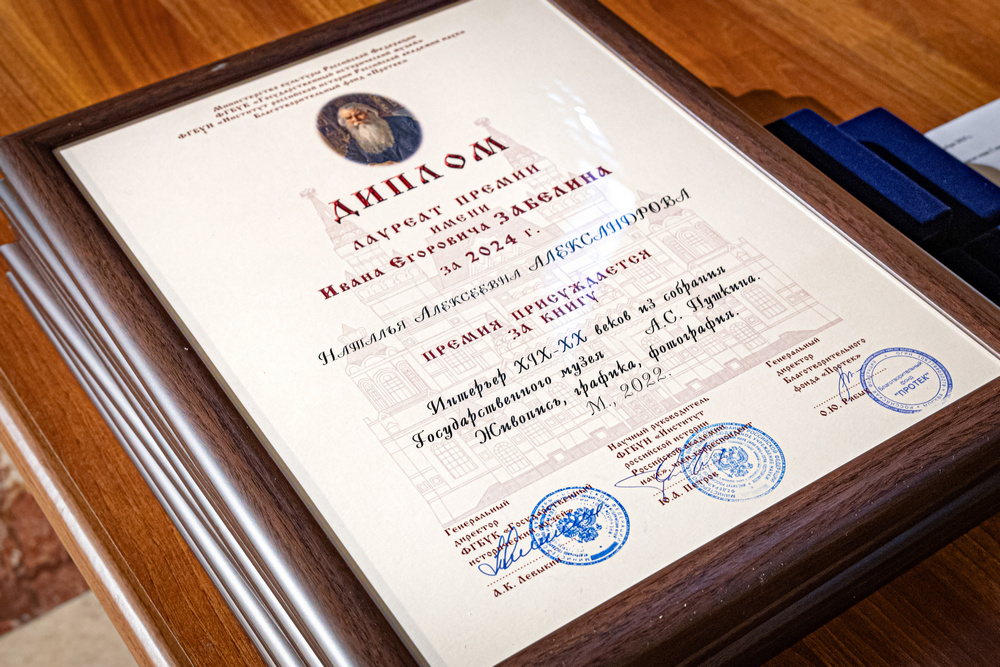 Министерство культуры Российской Федерации
ФГБУК «Государственный исторический музей»
ФГБУН «Институт российской истории Российской академии наук»
Благотворительный фонд «Протек»
ДИПЛОМ
ЛАУРЕАТ ПРЕМИИ
ИМЕНИ
Ивана Егоровича ЗАБЕЛИНА
за 2024 г.
НАТАЛЬЯ АЛЕКСЕЕВНА АЛЕКСАНДРОВА
ПРЕМИЯ ПРИСУЖДАЕТСЯ
ЗА КНИГУ
Интерьер XIX-XX веков из собрания
Государственного музея А.С. Пушкина.
Живопись, графика, фотография.
М., 2022.
Генеральный
директор
ФГБУК «Государственный
исторический музей»
А.К. Левыкин
Научный руководитель
ФГБУН «Институт
российской истории
Российской академии
наук», член-корреспондент
Ю.А. Петров
Генеральный
директор
Благотворительного
фонда «Протек»
О.Ю.
Благотворительный
фонд
"ПРОТЕК"